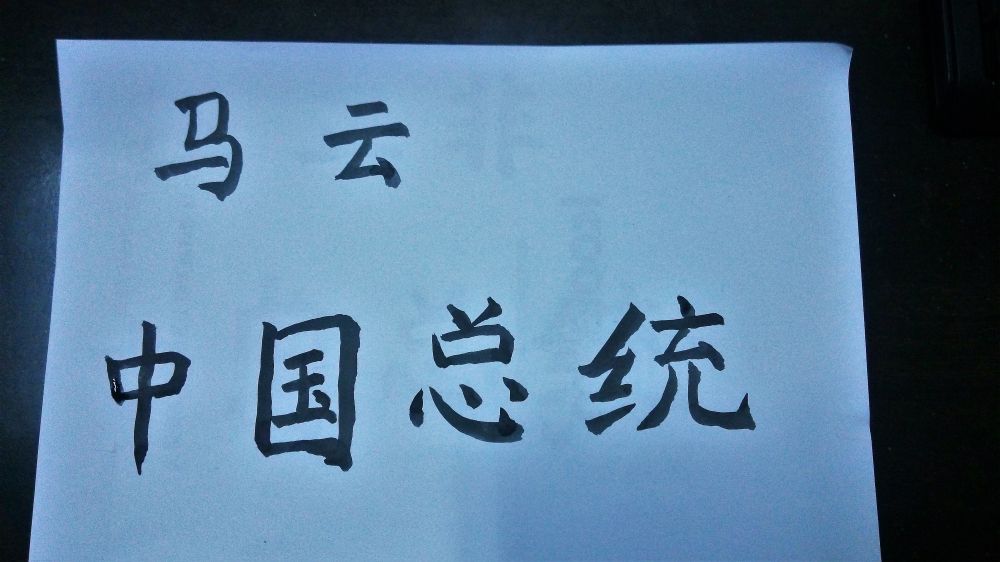 马云
中国总统